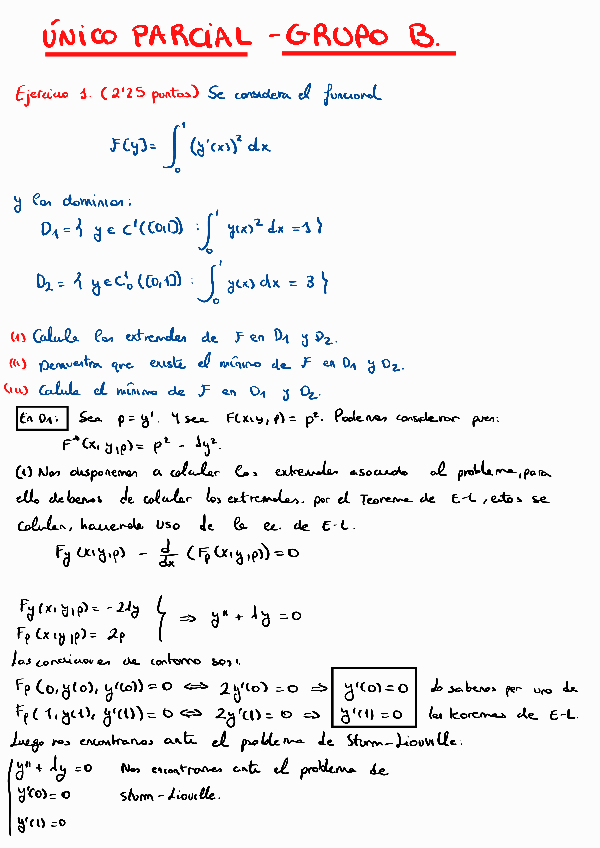 ÚNICO PARCIAL - GRUPO B.
Ejercicio 1. (2'25 puntos) Se considera el funcional
F[y] = ∫₀¹ (y'(x))² dx
y los dominios:
D₁ = { y ∈ C¹([0,1]) : ∫₀¹ y(x)² dx = 1 }
D₂ = { y ∈ C₀¹([0,1]) : ∫₀¹ y(x) dx = 3 }
(i) Calcula los extremales de F en D₁ y D₂.
(ii) Demuestra que existe el mínimo de F en D₁ y D₂.
(iii) Calcula el mínimo de F en D₁ y D₂.
En D₁: Sea p = y'. Y sea F(x,y,p) = p². Podemos considerar pues:
F*(x,y,p) = p² - λy².
(i) Nos disponemos a calcular los extremales asociado al problema, para
ello debemos de calcular los extremales. por el Teorema de E-L, estos se
calculan, haciendo uso de la ec. de E-L.
Fy (x,y,p) - d/dx (Fp (x,y,p)) = 0
Fy (x,y,p) = -2λy
Fp (x,y,p) = 2p } ⇒ y'' + λy = 0
Las condiciones de contorno son:
Fp (0, y(0), y'(0)) = 0 ⇔ 2y'(0) = 0 ⇒ y'(0) = 0 lo sabemos por uno de
Fp (1, y(1), y'(1)) = 0 ⇔ 2y'(1) = 0 ⇒ y'(1) = 0 los teoremas de E-L.
Luego nos encontramos ante el problema de Sturm-Liouville.
y'' + λy = 0 Nos encontramos ante el problema de
y'(0) = 0 Sturm-Liouville.
y'(1) = 0